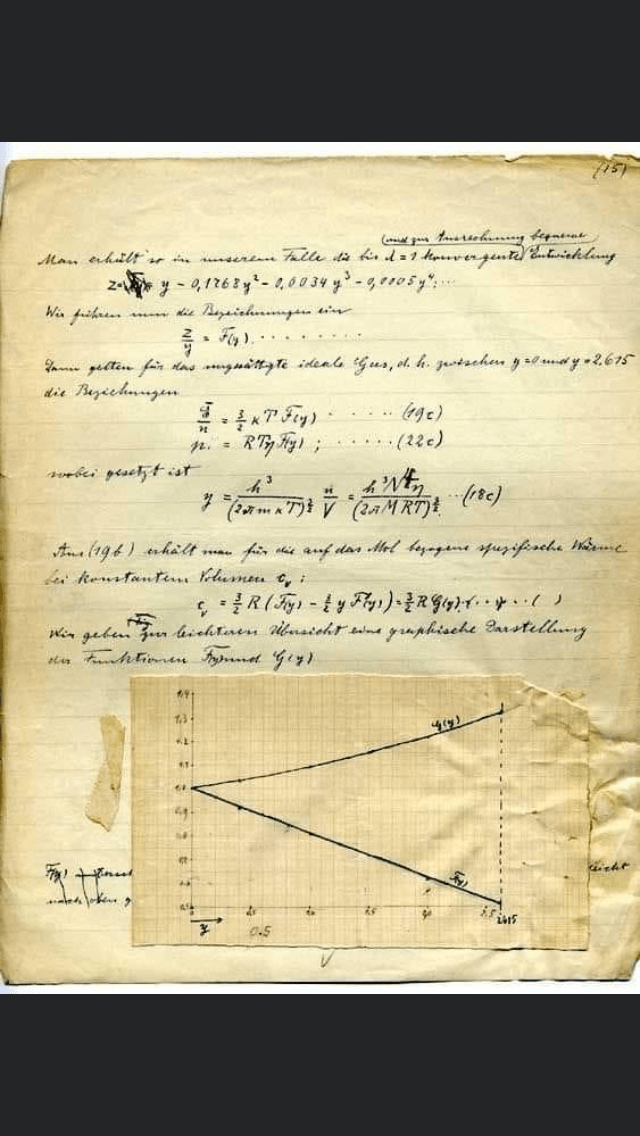 (15)
(und zur Ausrechnung bequeme)
Man erhält so in unserem Falle die bis λ = 1 konvergente Entwicklung
z = y - 0,1768 y² - 0,0034 y³ - 0,0005 y⁴ ...
Wir führen nun die Bezeichnungen ein
z/y = F(y) . . . . . . . .
Dann gelten für das ungesättigte ideale Gas, d. h. zwischen y = 0 und y = 2,615
die Beziehungen
Ē/n = 3/2 κ T F(y) . . . . . . (19c)
p = R T η F(y) ; . . . . . (22c)
wobei gesetzt ist
y = h³/(2π m κ T)^{3/2} n/V = h³ N⁴ η/(2π M R T)^{3/2} ... (18c)
Aus (19b) erhält man für die auf das Mol bezogene spezifische Wärme
bei konstantem Volumen c_v :
c_v = 3/2 R (F(y) - 3/2 y F'(y)) = 3/2 R G(y) ( )
Wir geben zur leichteren Übersicht eine graphische Darstellung
der Funktionen F(y) und G(y)
1.3
1.2
1.1
1.0
0.9
0.8
G(y)
F(y)
0
0.5
1.0
1.5
2.0
2.5
2.615
y
0.5
F(y)
leicht
nach oben